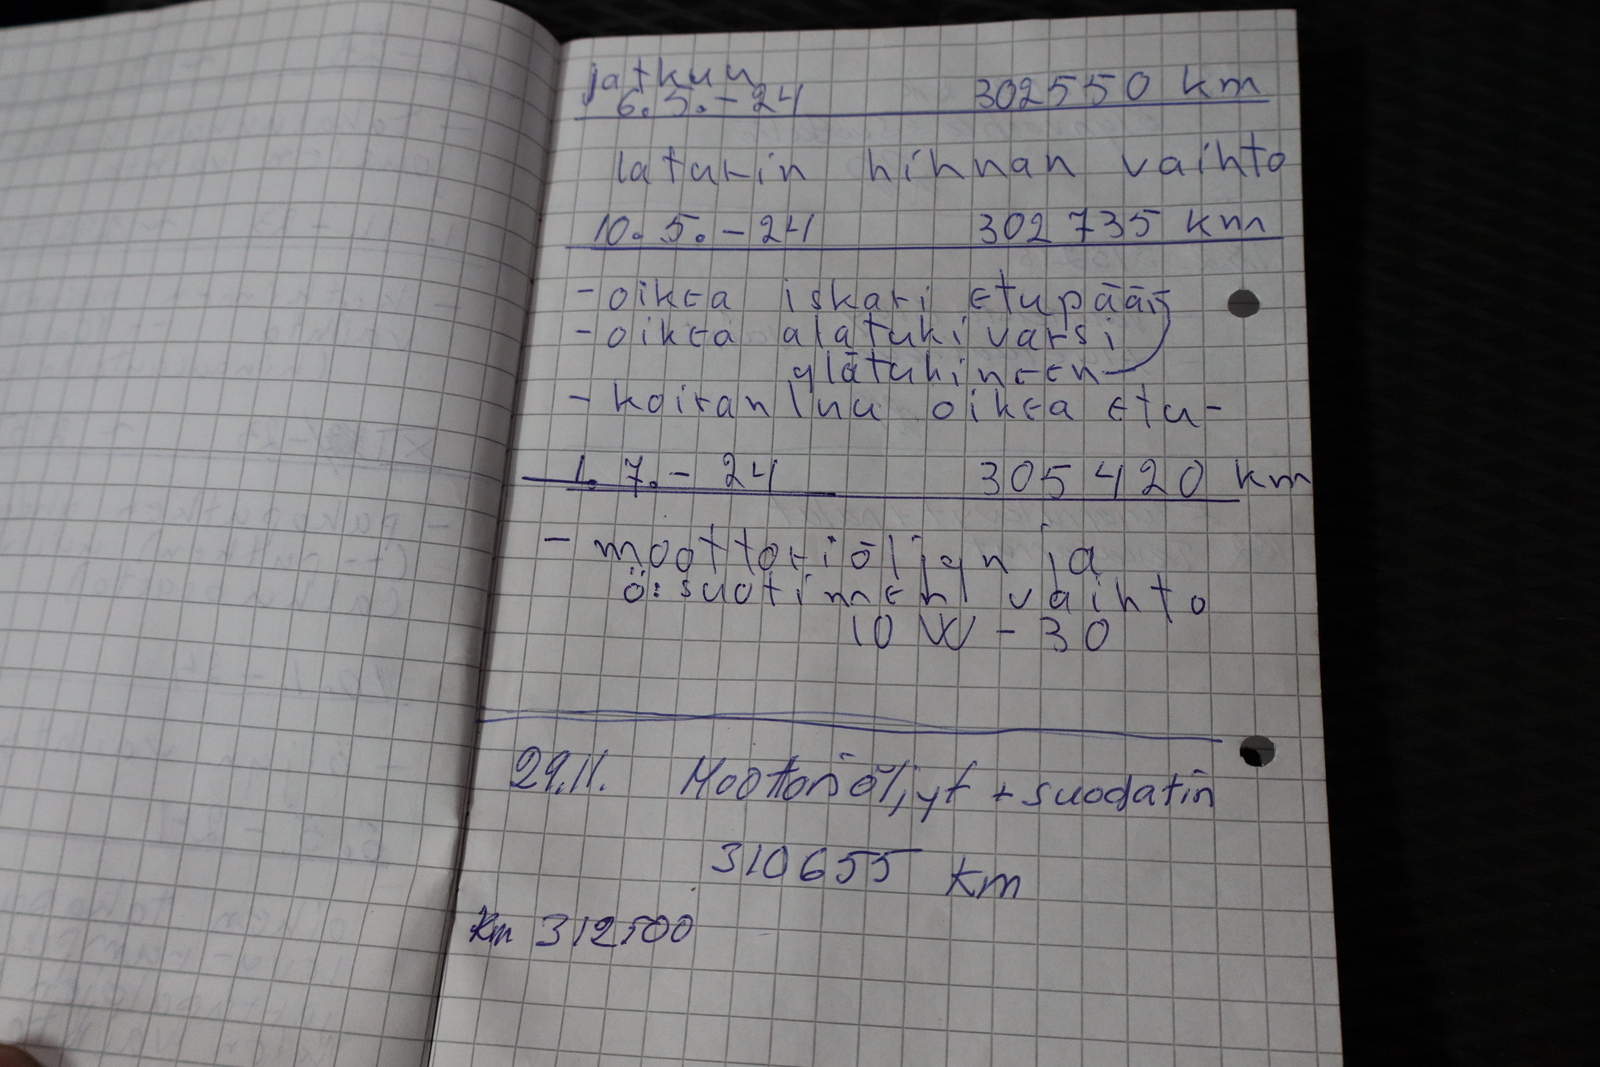 jatkuu
6.5.-24 302550 km
laturin hihnan vaihto
10.5.-24 302735 km
- oikea iskari etupään
- oikea alatukivarsi
ylätukineen
- koiranluu oikea etu-
1.7.-24 305420 km
- moottoriöljyn ja
ö:suotimen vaihto
10W-30
29.11. Moottoriöljyt + suodatin
310655 km
km 312500